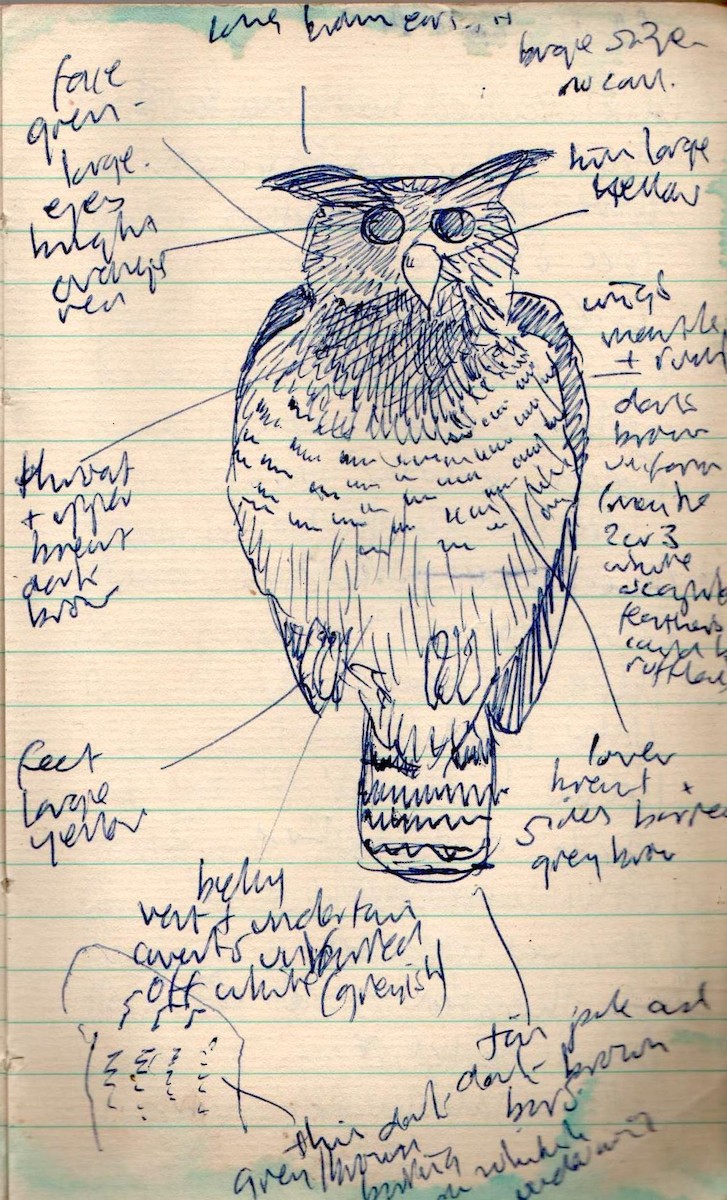 long brown ears
large size
no call.
face
grey -
large.
eyes
bright
orange
red
bill large
yellow
wings
mantle
+
dark
brown
uniform
(maybe
2 or 3
white
feathers
could be
throat
+ upper
breast
dark
brown
feet
large
yellow
lower
breast +
sides barred
grey brown
belly
vent + undertail
coverts unbarred
off white
(greyish)
pale and
dark brown
bars
thin dark
grey/brown
barring
on whitish
underwing